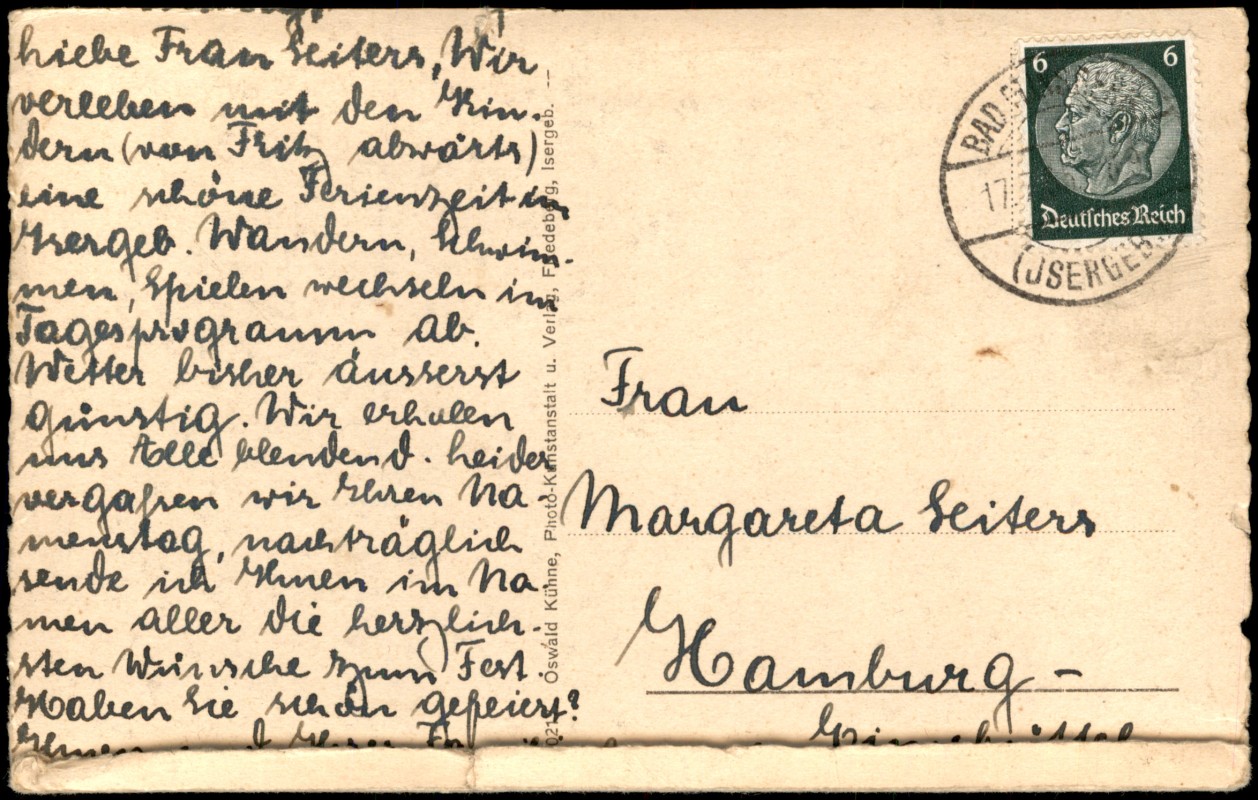 Liebe Frau Seiters, Wir
verleben mit den Kin-
dern (von Fritz abwärts)
eine schöne Ferienzeit im
Isergeb. Wandern, Schwim-
men, Spielen wechseln im
Tagesprogramm ab.
Wetter bisher äusserst
günstig. Wir erholen
uns Alle blendend. Leider
vergaßen wir Ihren Na-
menstag, nachträglich
sende ich Ihnen im Na-
men aller die herzlich-
sten Wünsche zum Fest.
Haben Sie schön gefeiert?
Ihnen und Ihrer
Oswald Kühne, Photo-Kunstanstalt u. Verlag, Friedeberg, Isergeb.
6 6
Deutsches Reich
BAD
17
(ISERGEB.
Frau
Margareta Seiters
Hamburg -